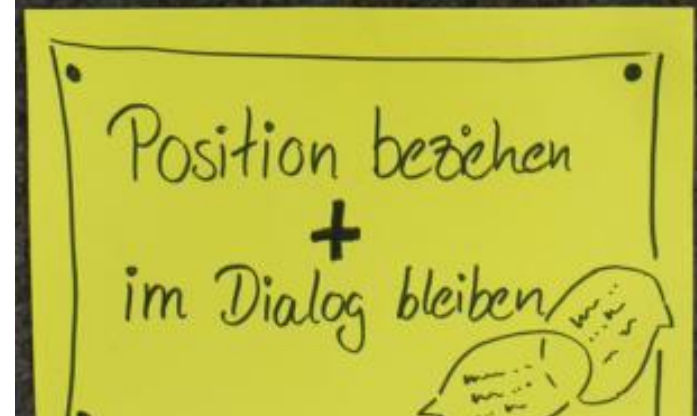 Position beziehen
+
im Dialog bleiben